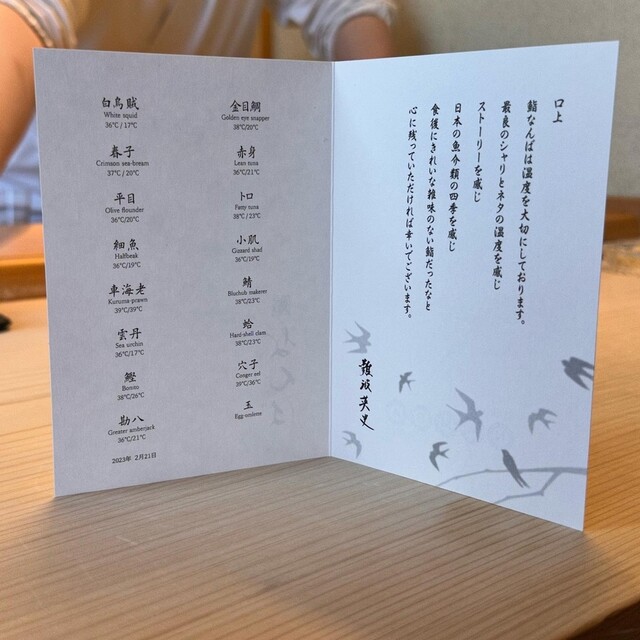 白烏賊
White squid
36℃ / 17℃
春子
Crimson sea-bream
37℃ / 20℃
平目
Olive flounder
36℃/20℃
細魚
Halfbeak
36℃/19℃
車海老
Kuruma-prawn
39℃/39℃
雲丹
Sea urchin
36℃/17℃
鰹
Bonito
38℃/26℃
勘八
Greater amberjack
36℃/21℃
2023年 2月21日
金目鯛
Golden eye snapper
38℃/20℃
赤身
Lean tuna
36℃/21℃
トロ
Fatty tuna
38℃ / 23℃
小肌
Gizzard shad
36℃/19℃
鯖
Bluchub makerer
38℃/23℃
蛤
Hard-shell clam
38℃/23℃
穴子
Conger eel
39℃/36℃
玉
Egg-omlette
口上
鮨なんばは温度を大切にしております。
最良のシャリとネタの温度を感じ
ストーリーを感じ
日本の魚介類の四季を感じ
食後にきれいな雑味のない鮨だったなと
心に残っていただければ幸いでございます。
難波英史